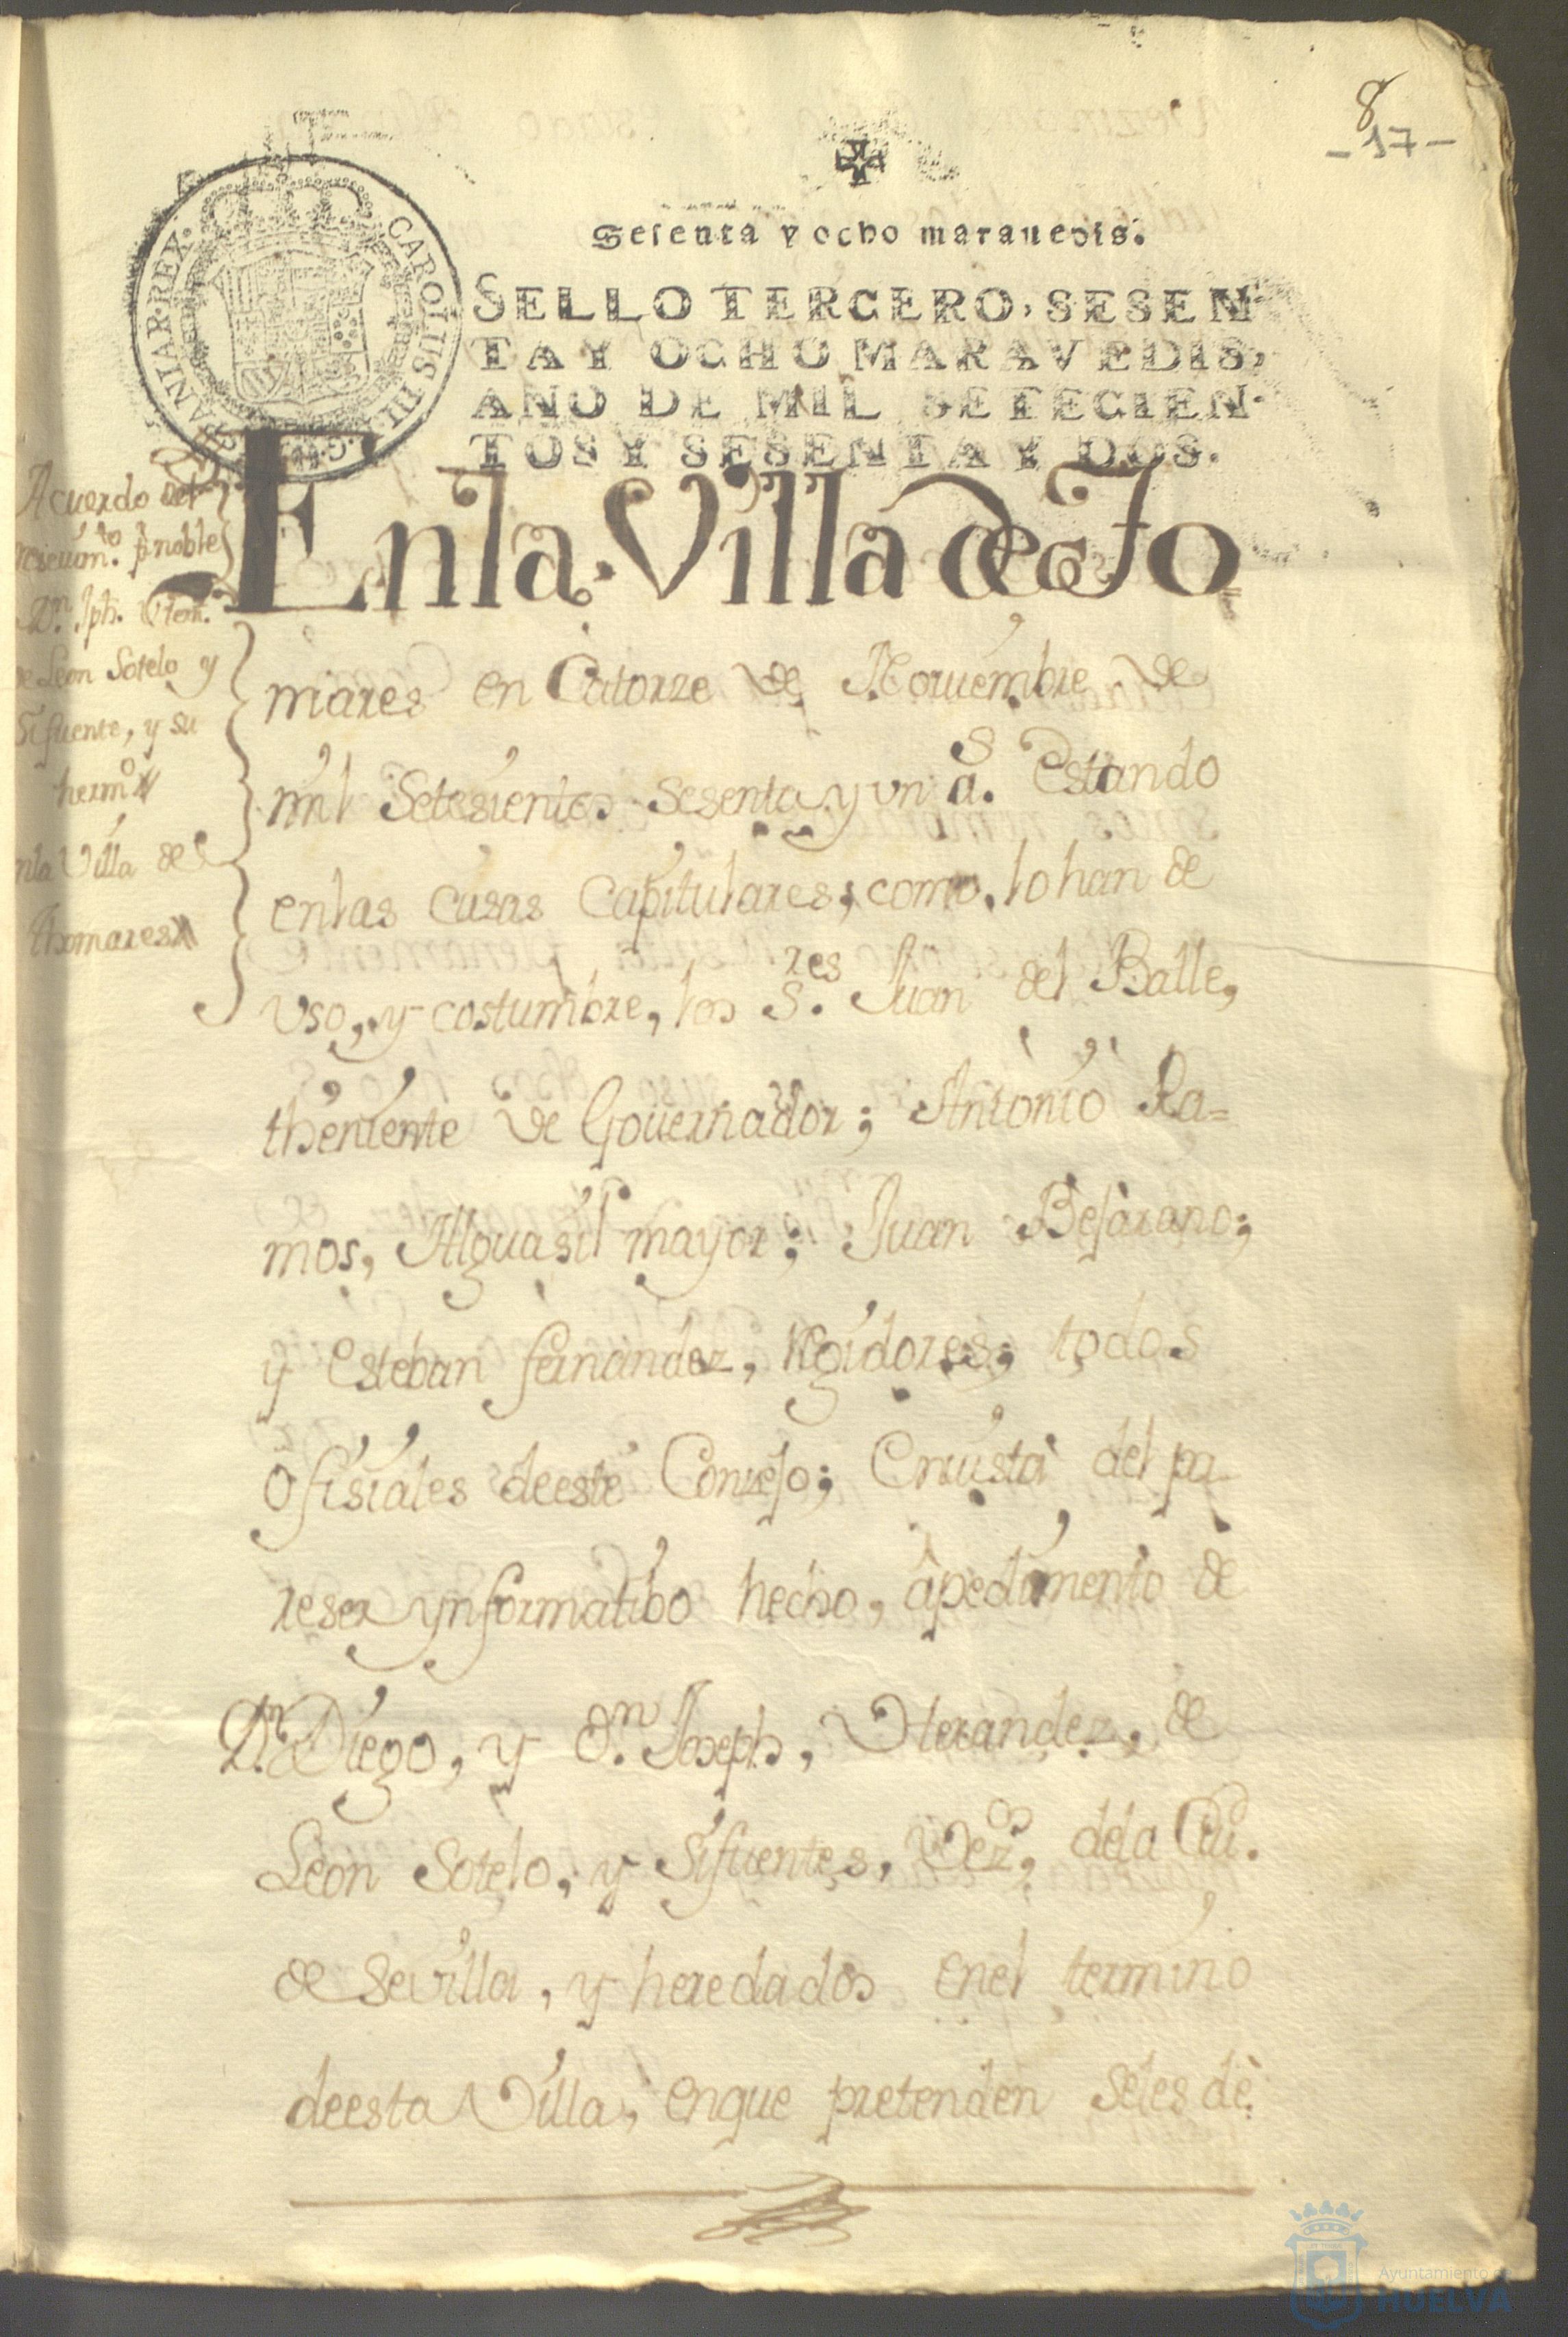 8
- 17 -
Sesenta y ocho marauedis.
SELLO TERCERO, SESEN
TA Y OCHO MARAVEDIS,
AÑO DE MIL SETECIEN-
TOS Y SESENTA Y DOS.
CAROLUS III
HISPANIAR. REX.
Acuerdo del
rcieuim.to pr. noble
Dn. Jph.
de Leon Sotelo y
Sifuente, y su
hermo
nla Villa de
thomares
En la Villa de to
mares en Catorze de Nouiembre de
mil Setesientos sesenta y un as. Estando
en las casas Capitulares, como lo han de
Uso, y costumbre, los S.res Juan del Balle,
theniente de Gouernador; Antonio Ra=
mos, Alguasil mayor; Juan Besarano;
y Esteban fernandez, Regidores; todos
ofisiales deeste Consejo; En uista del pa-
reser ynformatibo hecho, âpedimento de
Dn. Diego, y Dn. Joseph, de
León Sotelo, y Sifuentes, Vez.os dela Ciu.
de Sevilla, y heredados enel termino
deesta Villa, enque pretenden seles dè
Ayuntamiento de
HUELVA